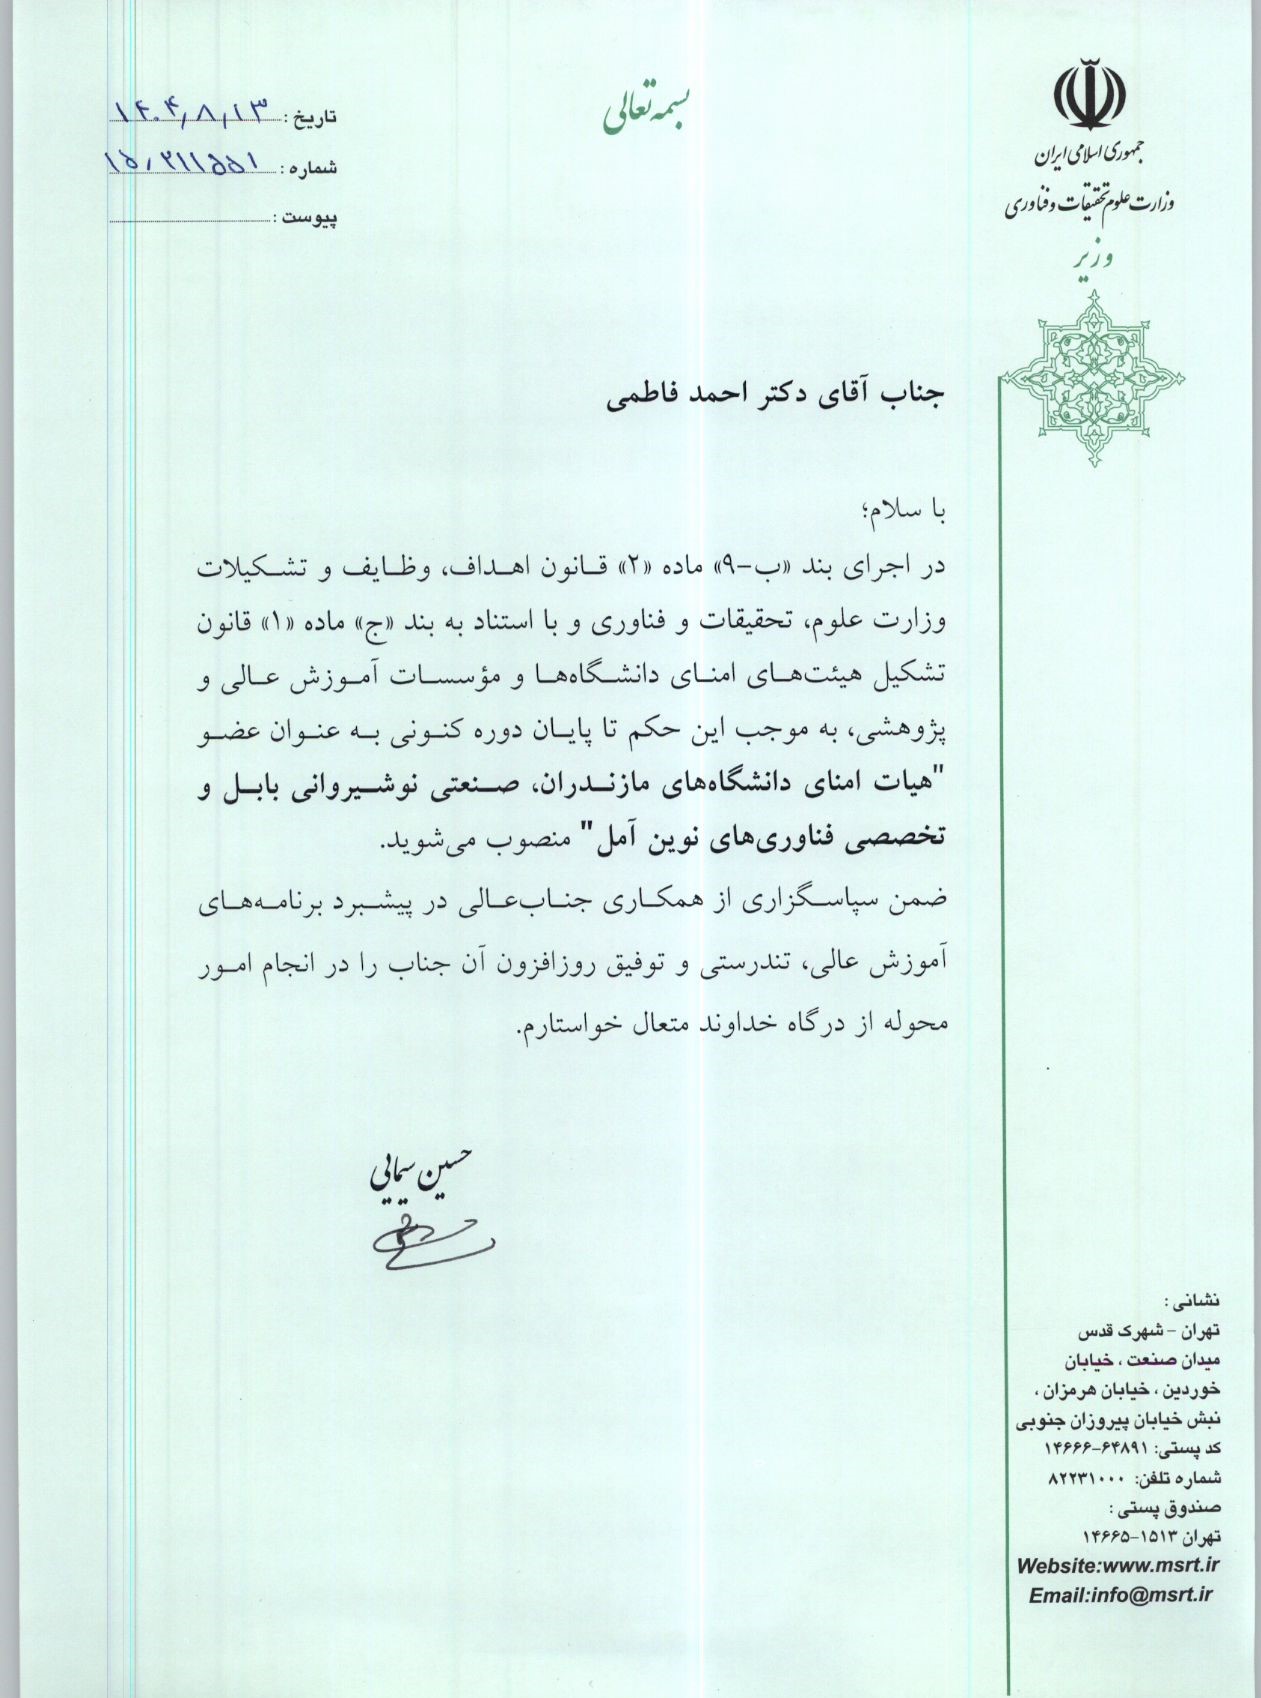 بسمه تعالی
جمهوری اسلامی ایران
وزارت علوم تحقیقات و فناوری
وزیر
تاریخ : ۱۴۰۴/۸/۱۳
شماره : ۱۵/۲۱۱۵۵۱
پیوست :
جناب آقای دکتر احمد فاطمی
با سلام؛
در اجرای بند «ب-۹» ماده «۲» قانون اهداف، وظایف و تشکیلات
وزارت علوم، تحقیقات و فناوری و با استناد به بند «ج» ماده «۱» قانون
تشکیل هیئت‌های امنای دانشگاه‌ها و مؤسسات آموزش عالی و
پژوهشی، به موجب این حکم تا پایان دوره کنونی به عنوان عضو
"هیات امنای دانشگاه‌های مازندران، صنعتی نوشیروانی بابل و
تخصصی فناوری‌های نوین آمل" منصوب می‌شوید.
ضمن سپاسگزاری از همکاری جناب‌عالی در پیشبرد برنامه‌های
آموزش عالی، تندرستی و توفیق روزافزون آن جناب را در انجام امور
محوله از درگاه خداوند متعال خواستارم.
حسین سیمایی
نشانی :
تهران - شهرک قدس
میدان صنعت ، خیابان
خوردین ، خیابان هرمزان ،
نبش خیابان پیروزان جنوبی
کد پستی: ۶۴۸۹۱-۱۴۶۶۶
شماره تلفن: ۸۲۲۳۱۰۰۰
صندوق پستی :
تهران ۱۵۱۳-۱۴۶۶۵
Website:www.msrt.ir
Email:info@msrt.ir